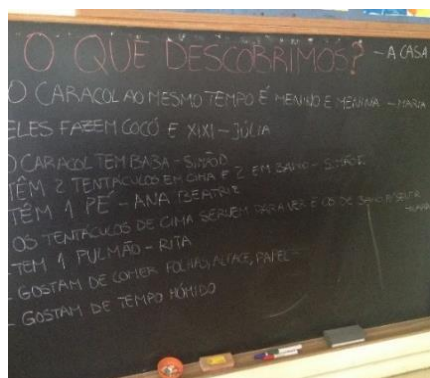 "O QUE DESCOBRIMOS? - A CASA
O CARACOL AO MESMO TEMPO É MENINO E MENINA - MARIA
ELES FAZEM COCÓ E XIXI - JÚLIA
O CARACOL TEM BABA - SIMÃO
TÊM 2 TENTÁCULOS EM CIMA E 2 EM BAIXO - SIMÃO
TÊM 1 PÉ - ANA BEATRIZ
OS TENTÁCULOS DE CIMA SERVEM PARA VER E OS DE BAIXO P/ SENTIR
- TEM 1 PULMÃO - RITA
- GOSTAM DE COMER FOLHAS, ALFACE, PAPEL -
- GOSTAM DE TEMPO HÚMIDO